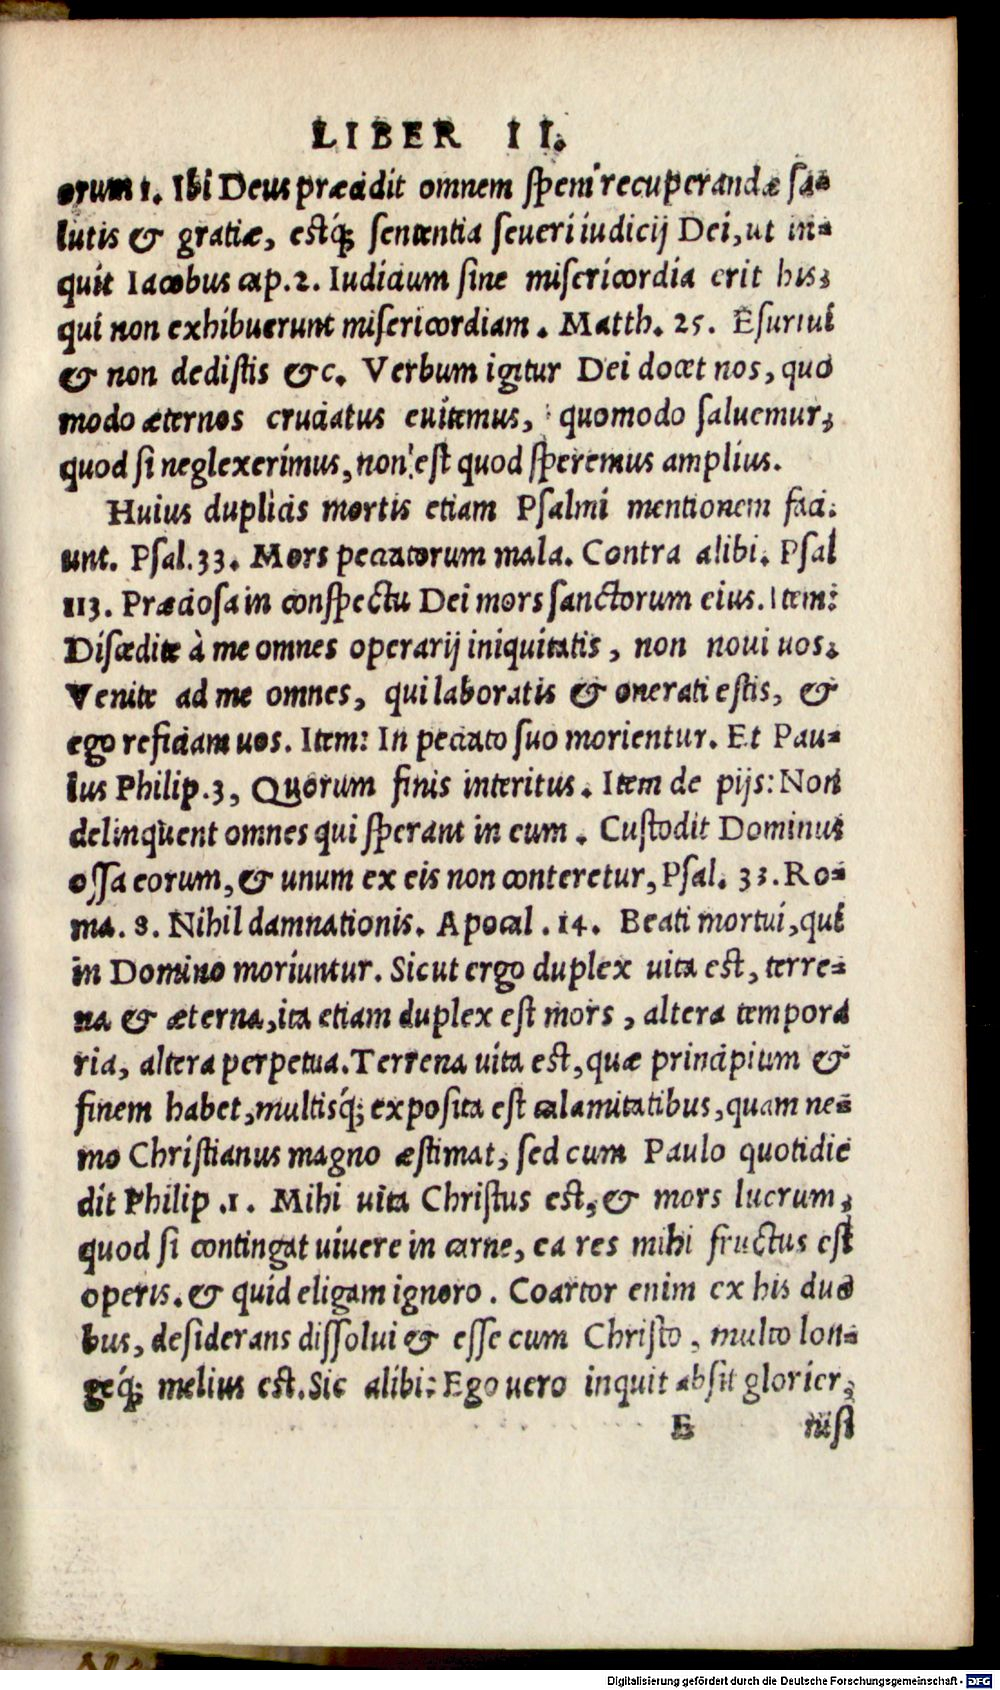 LIBER II.
orum 1. Ibi Deus præcidit omnem spem recuperandæ sa-
lutis & gratiæ, estq́; sententia seueri iudicij Dei, ut in-
quit Iacobus cap. 2. Iudicium sine misericordia erit his,
qui non exhibuerunt misericordiam. Matth. 25. Esuriui
& non dedistis &c. Verbum igitur Dei docet nos, quo
modo æternos cruciatus euitemus, quomodo saluemur,
quod si neglexerimus, non est quod speremus amplius.
Huius duplicis mortis etiam Psalmi mentionem faci-
unt. Psal. 33. Mors peccatorum mala. Contra alibi. Psal
113. Præciosa in conspectu Dei mors sanctorum eius. Item:
Discedite à me omnes operarij iniquitatis, non noui uos.
Venite ad me omnes, qui laboratis & onerati estis, &
ego reficiam uos. Item: In peccato suo morientur. Et Pau-
lus Philip. 3, Quorum finis interitus. Item de pijs: Non
delinquent omnes qui sperant in eum. Custodit Dominus
ossa eorum, & unum ex eis non conteretur, Psal. 33. Ro-
ma. 8. Nihil damnationis. Apocal. 14. Beati mortui, qui
in Domino moriuntur. Sicut ergo duplex uita est, terre-
na & æterna, ita etiam duplex est mors, altera tempora
ria, altera perpetua. Terrena uita est, quæ principium &
finem habet, multisq́; exposita est calamitatibus, quam ne-
mo Christianus magno æstimat, sed cum Paulo quotidie
dit Philip. 1. Mihi uita Christus est, & mors lucrum,
quod si contingat uiuere in carne, ea res mihi fructus est
operis. & quid eligam ignoro. Coartor enim ex his duo
bus, desiderans dissolui & esse cum Christo, multo lon-
geq́; melius est. Sic alibi: Ego uero inquit absit glorier,
E nisi
Digitalisierung gefördert durch die Deutsche Forschungsgemeinschaft - DFG